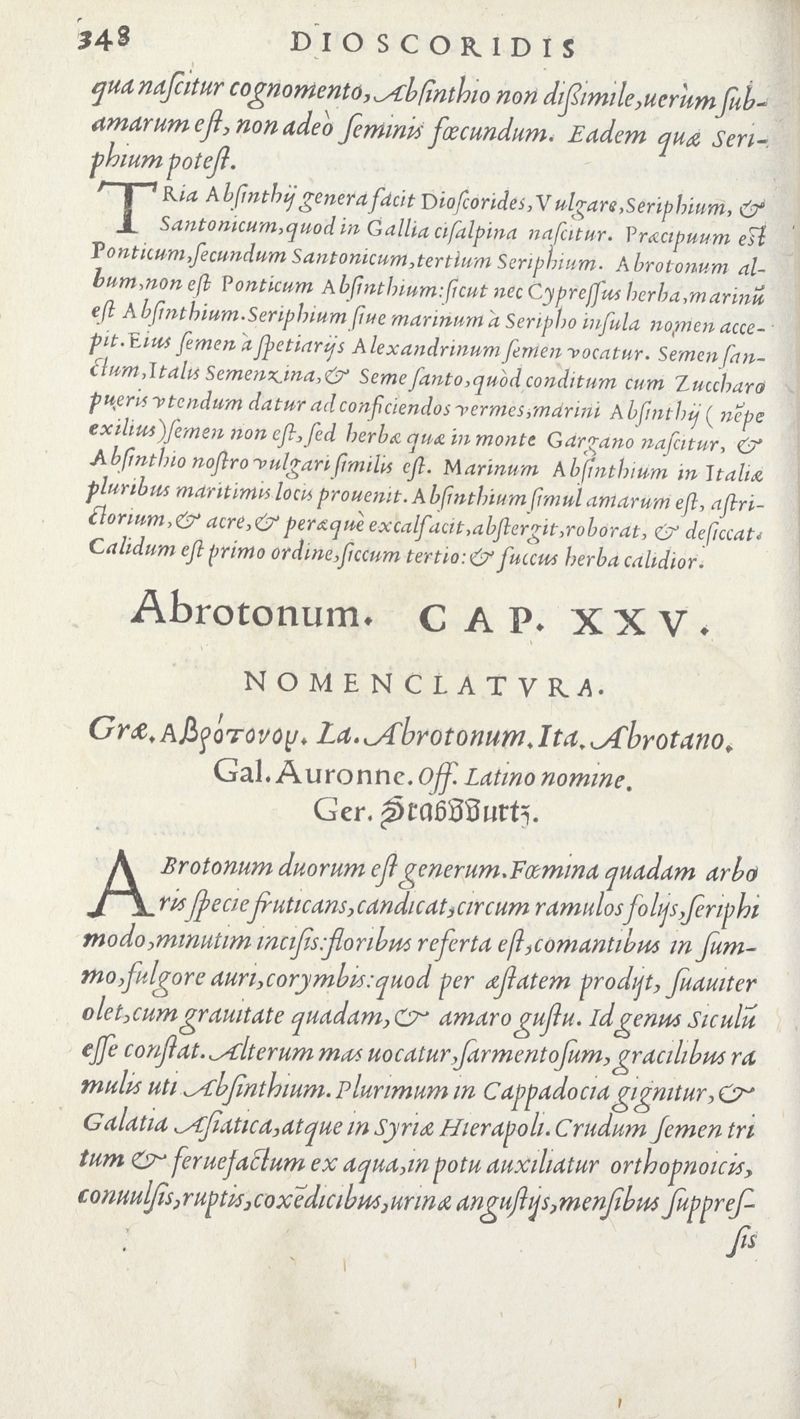 348 DIOSCORIDIS
qua naſcitur cognomento, Abſinthio non dißimile, uerùm ſub-
amarum eſt, non adeò ſeminis fœcundum. Eadem quæ Seri-
phium poteſt.
TRia Abſinthij genera facit Dioſcorides, Vulgare, Seriphium, &
Santonicum, quod in Gallia ciſalpina naſcitur. Præcipuum eſt
Ponticum, ſecundum Santonicum, tertium Seriphium. Abrotonum al-
bum, non eſt Ponticum Abſinthium: ſicut nec Cypreſſus herba, marinū
eſt Abſinthium. Seriphium ſiue marinum à Seripho inſula nomen acce-
pit. Eius ſemen à ſpetiarijs Alexandrinum ſemen vocatur. Semen ſan-
ctum, Italis Semenzina, & Seme ſanto, quòd conditum cum Zuccharo
pueris vtendum datur ad conficiendos vermes, marini Abſinthij ( nēpe
exilius) ſemen non eſt, ſed herbæ quæ in monte Gargano naſcitur, &
Abſinthio noſtro vulgari ſimilis eſt. Marinum Abſinthium in Italiæ
pluribus maritimis locis prouenit. Abſinthium ſimul amarum eſt, aſtri-
ctorium, & acre, & peræquè excalfacit, abſtergit, roborat, & deſiccat.
Calidum eſt primo ordine, ſiccum tertio: & ſuccus herba calidior.
Abrotonum. CAP. XXV.
NOMENCLATVRA.
Græ. Αβρότονον. La. Abrotonum. Ita. Abrotano.
Gal. Auronne. Off. Latino nomine.
Ger. Stabwurtz.
ABrotonum duorum eſt generum. Fœmina quadam arbo
ris ſpecie fruticans, candicat, circum ramulos folijs, ſeriphi
modo, minutim inciſis: floribus referta eſt, comantibus in ſum-
mo, fulgore auri, corymbis: quod per æſtatem prodijt, ſuauiter
olet, cum grauitate quadam, & amaro guſtu. Id genus Siculū
eſſe conſtat. Alterum mas uocatur, ſarmentoſum, gracilibus ra
mulis uti Abſinthium. Plurimum in Cappadocia gignitur, &
Galatia Aſiatica, atque in Syriæ Hierapoli. Crudum ſemen tri
tum & feruefactum ex aqua, in potu auxiliatur orthopnoicis,
conuulſis, ruptis, coxēdicibus, urinæ anguſtijs, menſibus ſuppreſ-
ſis